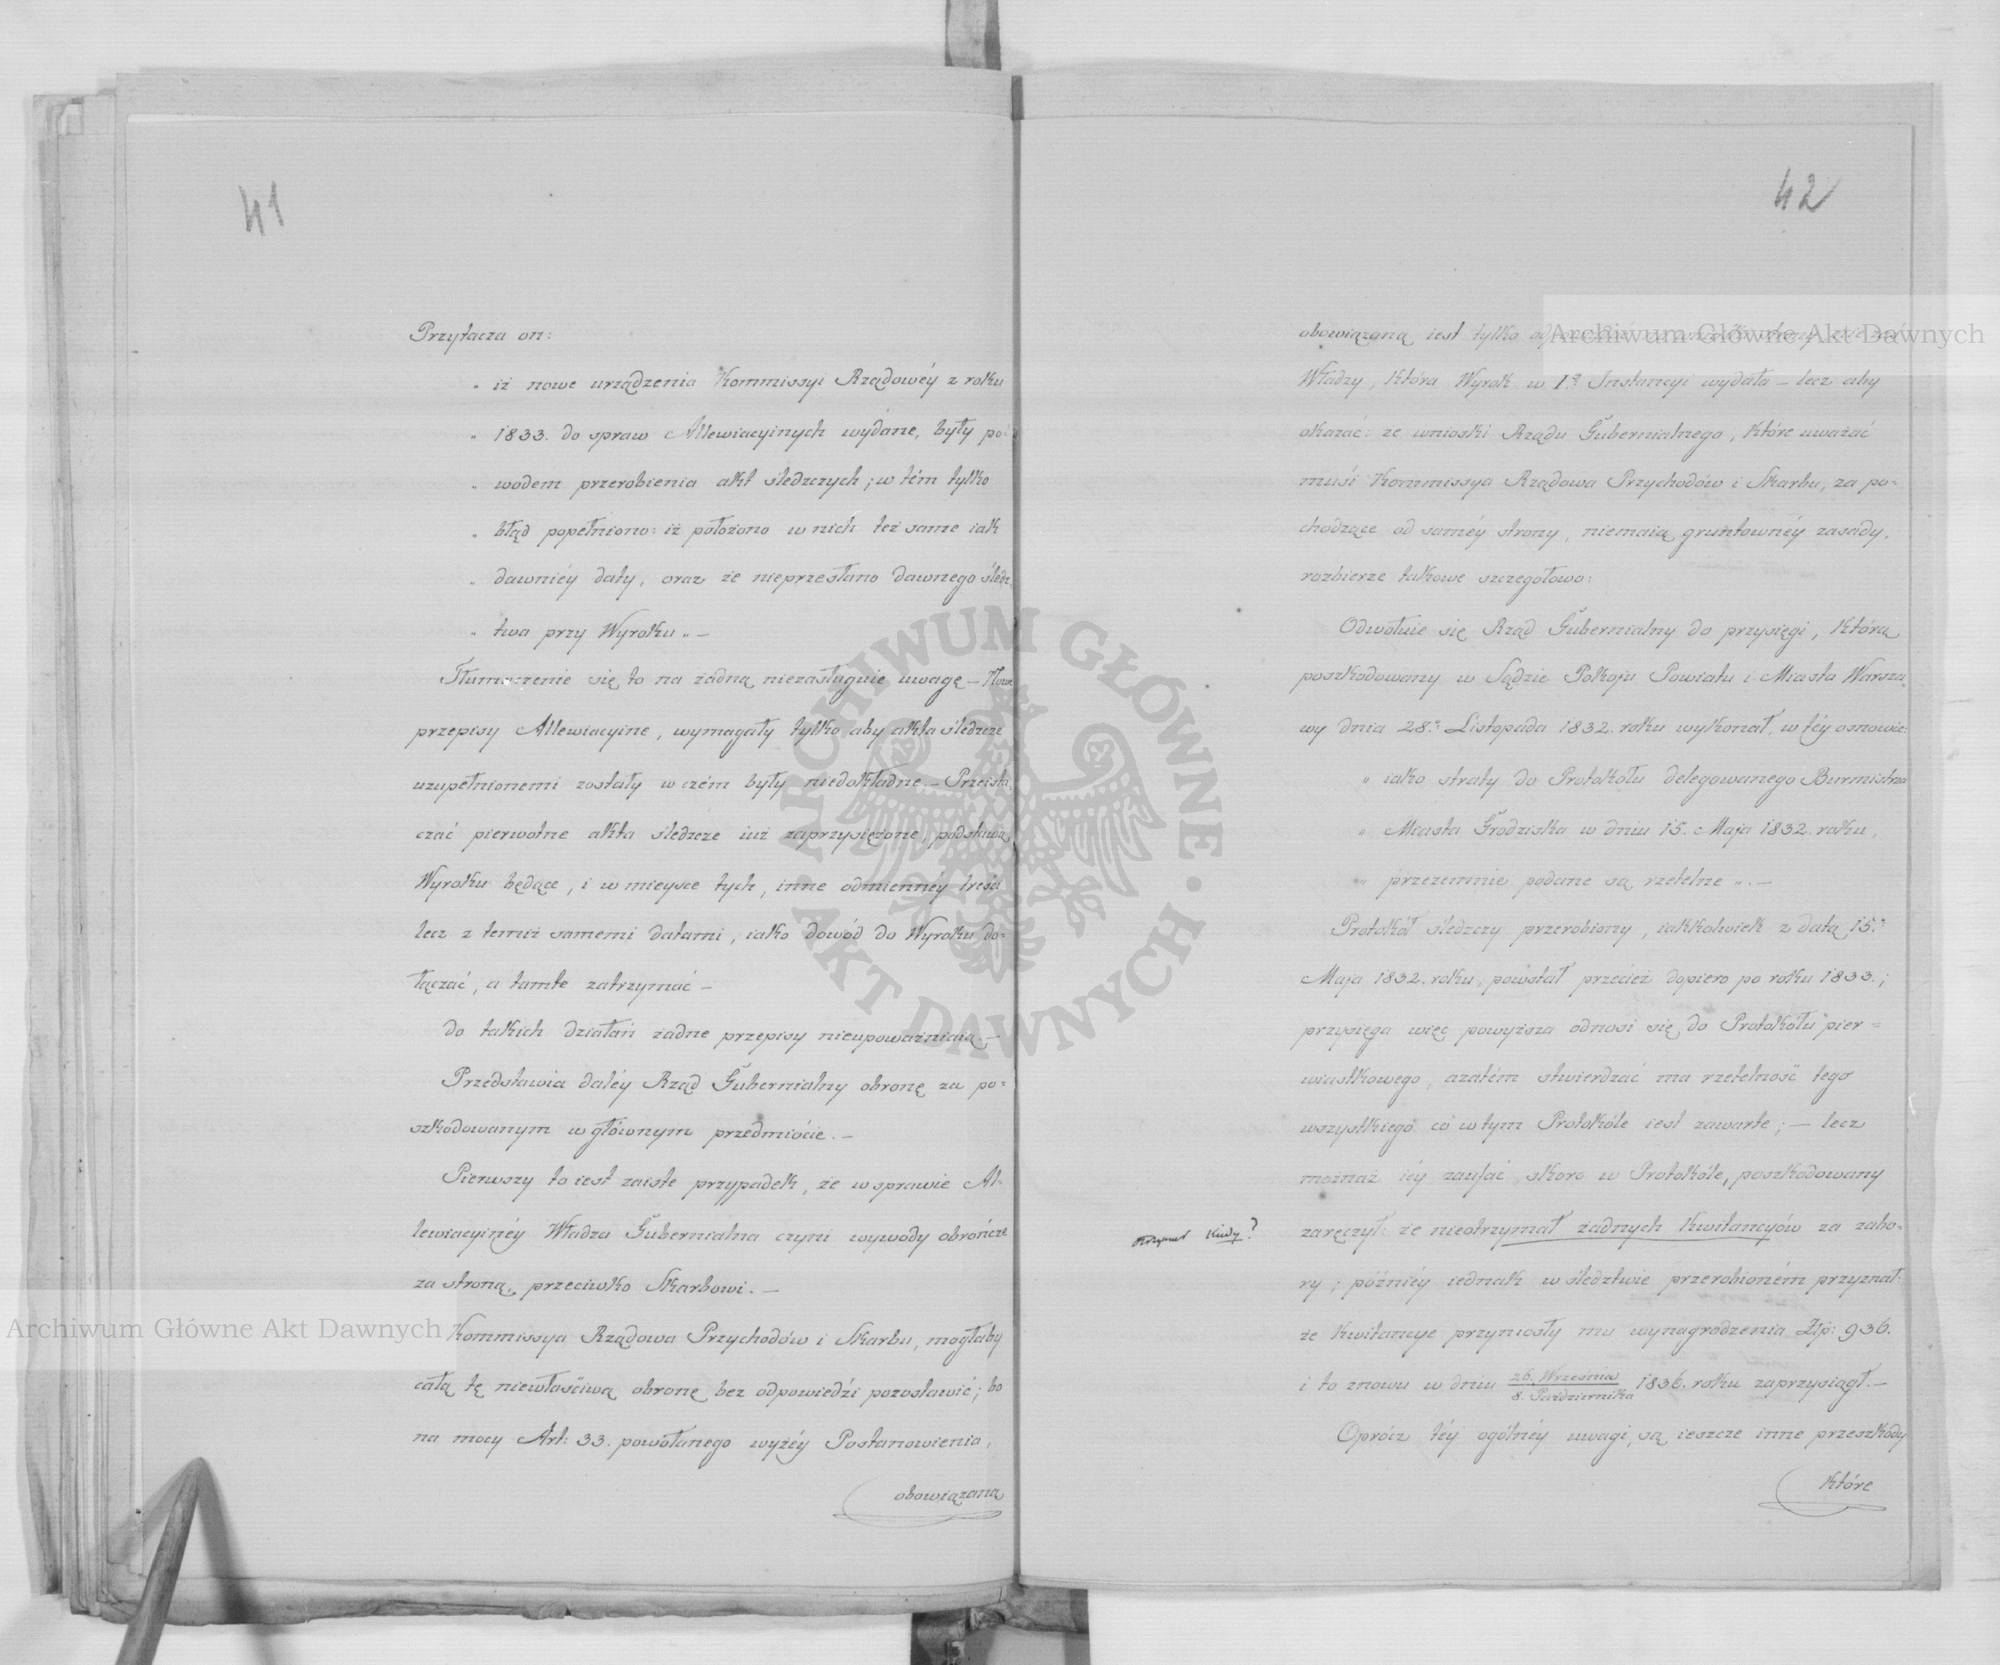 41
Przytacza on:
„ iż nowe urządzenia Kommissyi Rządowéy z roku
„ 1833. do spraw Allewiacyinych wydane, były po=
„ wodem przerobienia akt śledczych; w tém tylko
„ błąd popełniono: iż położono w nich też same iak
„ dawniéy daty, oraz że nieprzesłano dawnego śledz
„ twa przy Wyroku „ —
Tłumaczenie się to na żadną niezasługuie uwagę — Nowe
przepisy Allewiacyine, wymagały tylko aby akta śledcze
uzupełnionemi zostały w czém były niedokładne — Przeista
czać pierwotne akta śledcze iuż zaprzysiężone, podstawą
Wyroku będące, i w mieysce tych, inne odmiennéy treści
lecz z temiż samemi datami, iako dowód do Wyroku do=
łączać, a tamte zatrzymać —
do takich działań żadne przepisy nieupoważniaią. —
Przedstawia daléy Rząd Gubernialny obronę za po=
szkodowanym w głównym przedmiocie. —
Pierwszy to iest zaiste przypadek, że w sprawie Al=
lewiacyinéy Władza Gubernialna czyni wywody obrończe
za stroną, przeciwko Skarbowi. —
Kommissya Rządowa Przychodów i Skarbu, mogłaby
całą tę niewłaściwą obronę bez odpowiedzi pozostawić; bo
na mocy Art: 33. powołanego wyżéy Postanowienia,
obowiązaną
42
obowiązaną iest tylko
Władzy, która Wyrok w 1.éy Instancyi wydała — lecz aby
okazać: że wnioski Rządu Gubernialnego, które uważać
musi Kommissya Rządowa Przychodów i Skarbu, za po=
chodzące od saméy strony, niemaią gruntownéy zasady,
rozbierze takowe szczegółowo:
Odwołuie się Rząd Gubernialny do przysięgi, którą
poszkodowany w Sądzie Pokoju Powiatu i Miasta Warsza
wy dnia 28.o Listopada 1832. roku wykonał, w téy osnowie:
„ iako straty do Protokółu delegowanego Burmistrza
„ Miasta Grodziska w dniu 15. Maja 1832. roku,
„ przezemnie podane są rzetelne „. —
Protokół śledczy przerobiony, iakkolwiek z datą 15.o
Maja 1832. roku, powstał przecież dopiero po roku 1833.;
przysięga więc powyższa odnosi się do Protokółu pier=
wiastkowego, azatém stwierdzać ma rzetelność tego
wszystkiego co w tym Protokóle iest zawarte; — lecz
możnaż iéy zaufać, skoro w Protokóle, poszkodowany
kiedy?
zaręczył: że nieotrzymał żadnych Kwitancyów za zabo=
ry; późniéy iednak w śledztwie przerobioném przyznał:
że Kwitancye przyniosły mu wynagrodzenia Złp: 936.
i to znowu w dniu 26. Września / 8. Października 1836. roku zaprzysiągł. —
Oprócz téy ogólnéy uwagi, są ieszcze inne przeszkody
które
Archiwum Główne Akt Dawnych
Archiwum Główne Akt Dawnych
ARCHIWUM GŁÓWNE • AKT DAWNYCH •